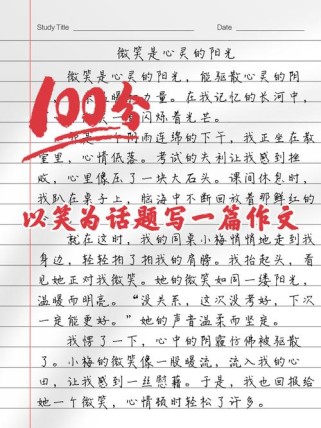 Study Title
Date
微笑是心灵的阳光
微笑是心灵的阳光，能驱散心灵的阴
力量。在我记忆的长河中，
闪烁着光芒。
100分
阴雨连绵的下午，我正坐在教
室里，心情低落。考试的失利让我感到挫
败，心里像压了一块大石头。课间休息时，
我趴在桌子上，脑海中不断回放着那鲜红的
以笑为话题写一篇作文
就在这时，我的同桌小梅悄悄地走到我
身边，轻轻拍了拍我的肩膀。我抬起头，看
见她正对我微笑。她的微笑如同一缕阳光，
温暖而明亮。“没关系，这次没考好，下次
一定能更好。”她的声音温柔而坚定。
我愣了一下，心中的阴霾仿佛被驱散
了。小梅的微笑像一股暖流，流入我的心
田，让我感到一丝慰藉。于是，我也回报给
她一个微笑，心情顿时轻松了许多。